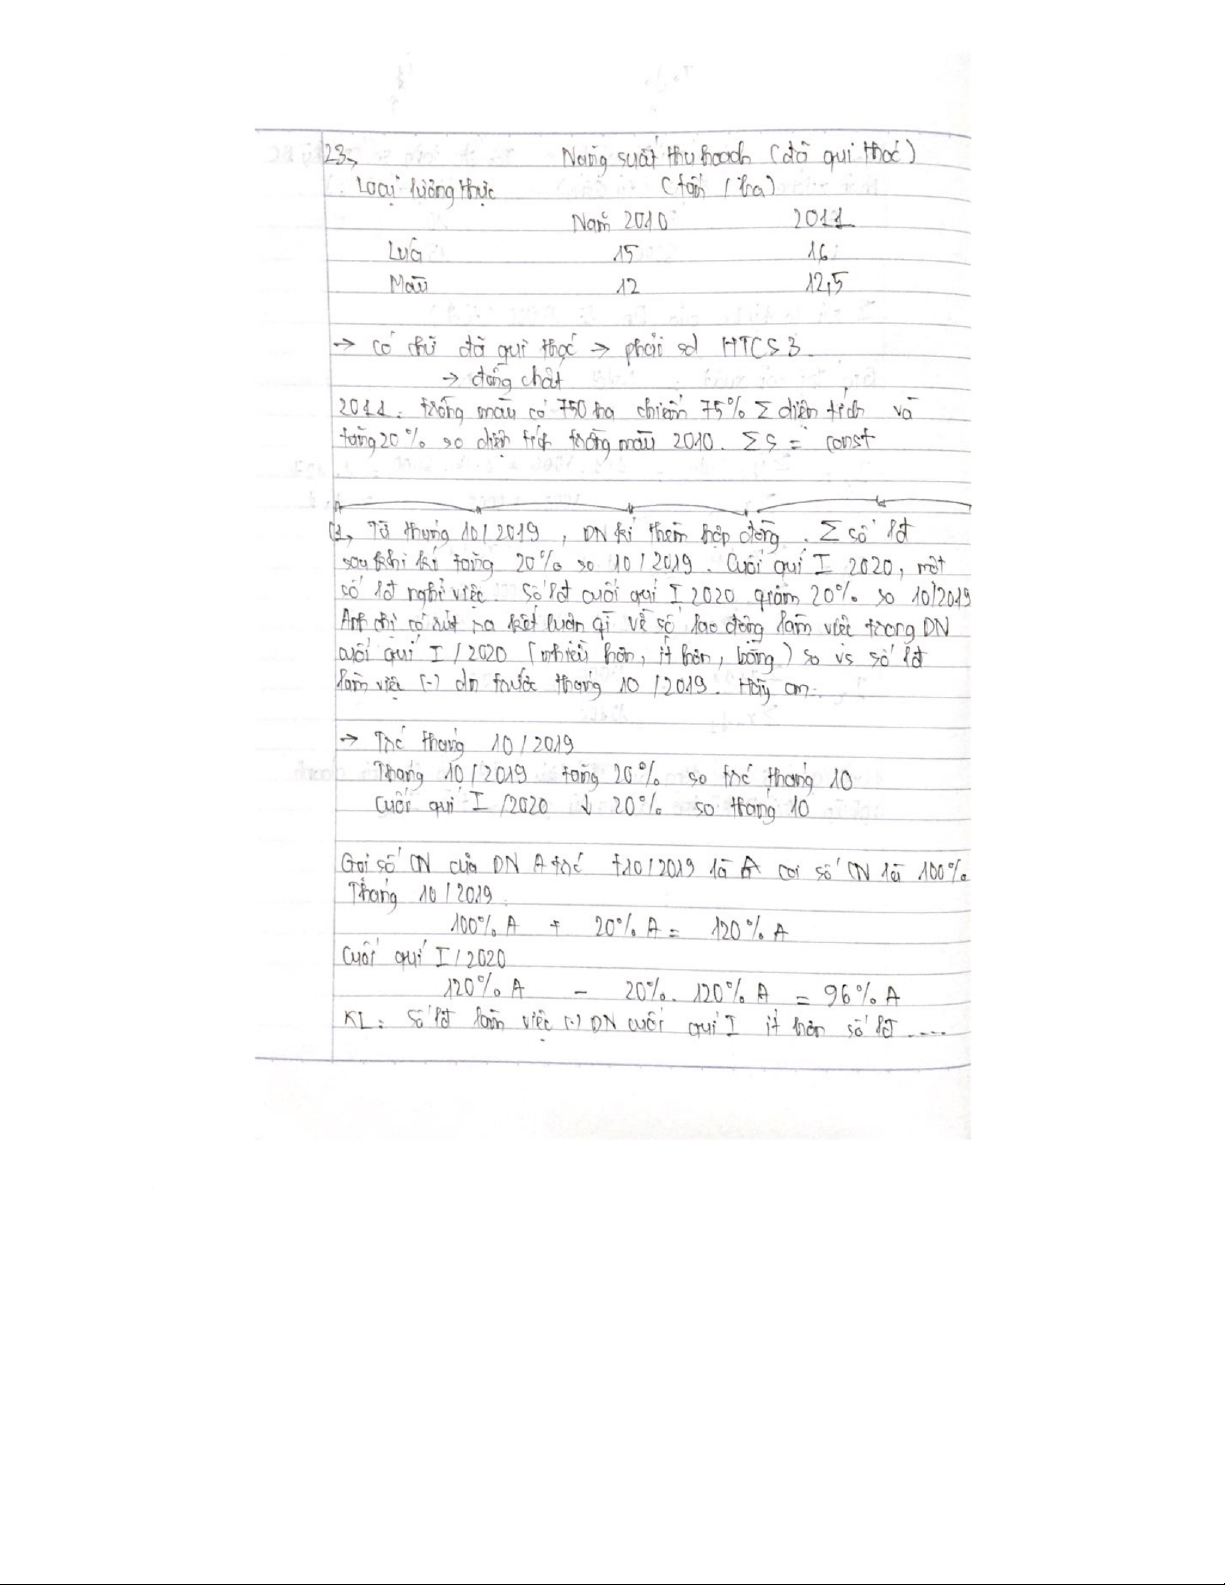 23, Năng suất thu hoạch (đã qui thóc)
Loại lương thực (tấn / ha)
Năm 2010 2011
Lúa 15 16
Màu 12 12,5
→ có chữ đã qui thóc → phải sd HTCS 3.
→ đồng chất
2011: trồng màu có 750 ha chiếm 75% Σ diện tích và
tăng 20% so diện tích trồng màu 2010. ΣS = const
C1, Từ tháng 10/2019, DN kí thêm hợp đồng. Σ số lđ
sau khi kí tăng 20% so 10/2019. Cuối quí I 2020, một
số lđ nghỉ việc. Số lđ cuối quí I 2020 giảm 20% so 10/2019
Anh chị có rút ra kết luận gì về số lao động làm việc trong DN
cuối quí I/2020 (nhiều hơn, ít hơn, bằng) so vs số lđ
làm việc (-) dn trước tháng 10/2019. Hãy cm.
→ Trc tháng 10/2019
Tháng 10/2019 tăng 20% so trc tháng 10
Cuối quí I/2020 ↓ 20% so tháng 10
Gọi số CN của DN A trc t10/2019 là A coi số CN là 100%
Tháng 10/2019.
100% A + 20% A = 120% A
Cuối quí I/2020
120% A - 20%. 120% A = 96% A
KL: Số lđ làm việc (-) DN cuối quí I ít hơn số lđ .....